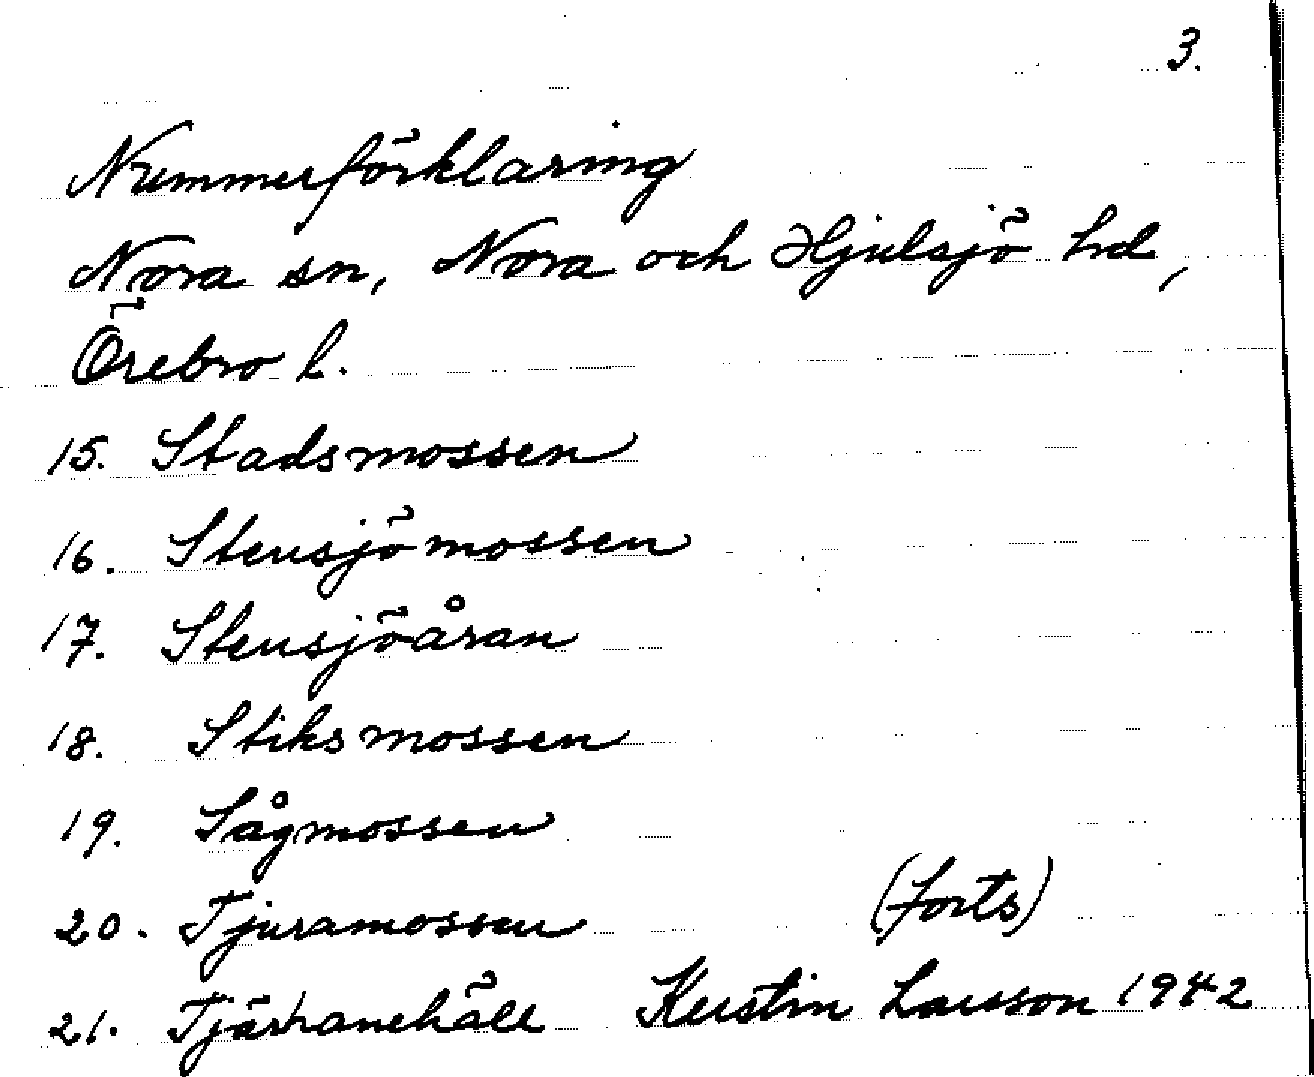 3.
Nummerförklaring
Nora sn, Nora och Hjulsjö hd,
Örebro l.
15. Stadsmossen
16. Stensjömossen
17. Stensjöåran
18. Stiksmossen
19. Sågmossen
20. Tjuramossen (forts)
21. Kerstin Larsson 1942